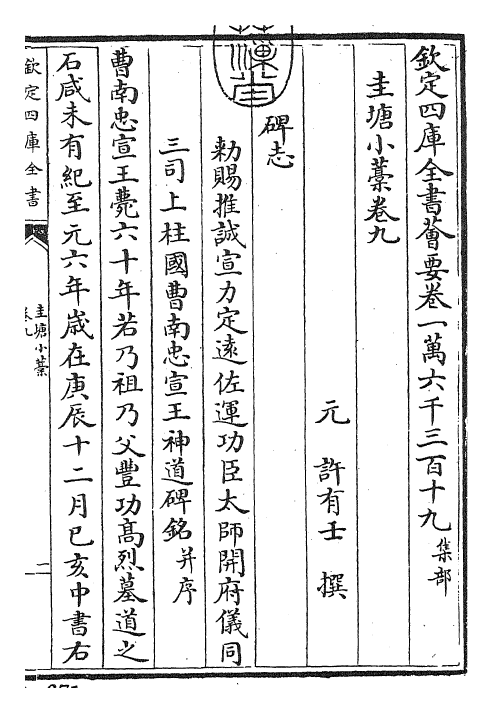 欽定四庫全書薈要卷一萬六千三百十九集部
圭塘小藁卷九
元 許有壬 撰
碑志
勅賜推誠宣力定遠佐運功臣太師開府儀同
三司上柱國曹南忠宣王神道碑銘并序
曹南忠宣王薨六十年若乃祖乃父豐功高烈墓道之
石咸未有紀至元六年歲在庚辰十二月巳亥中書右
欽定四庫全書
圭塘小藁
卷九
一